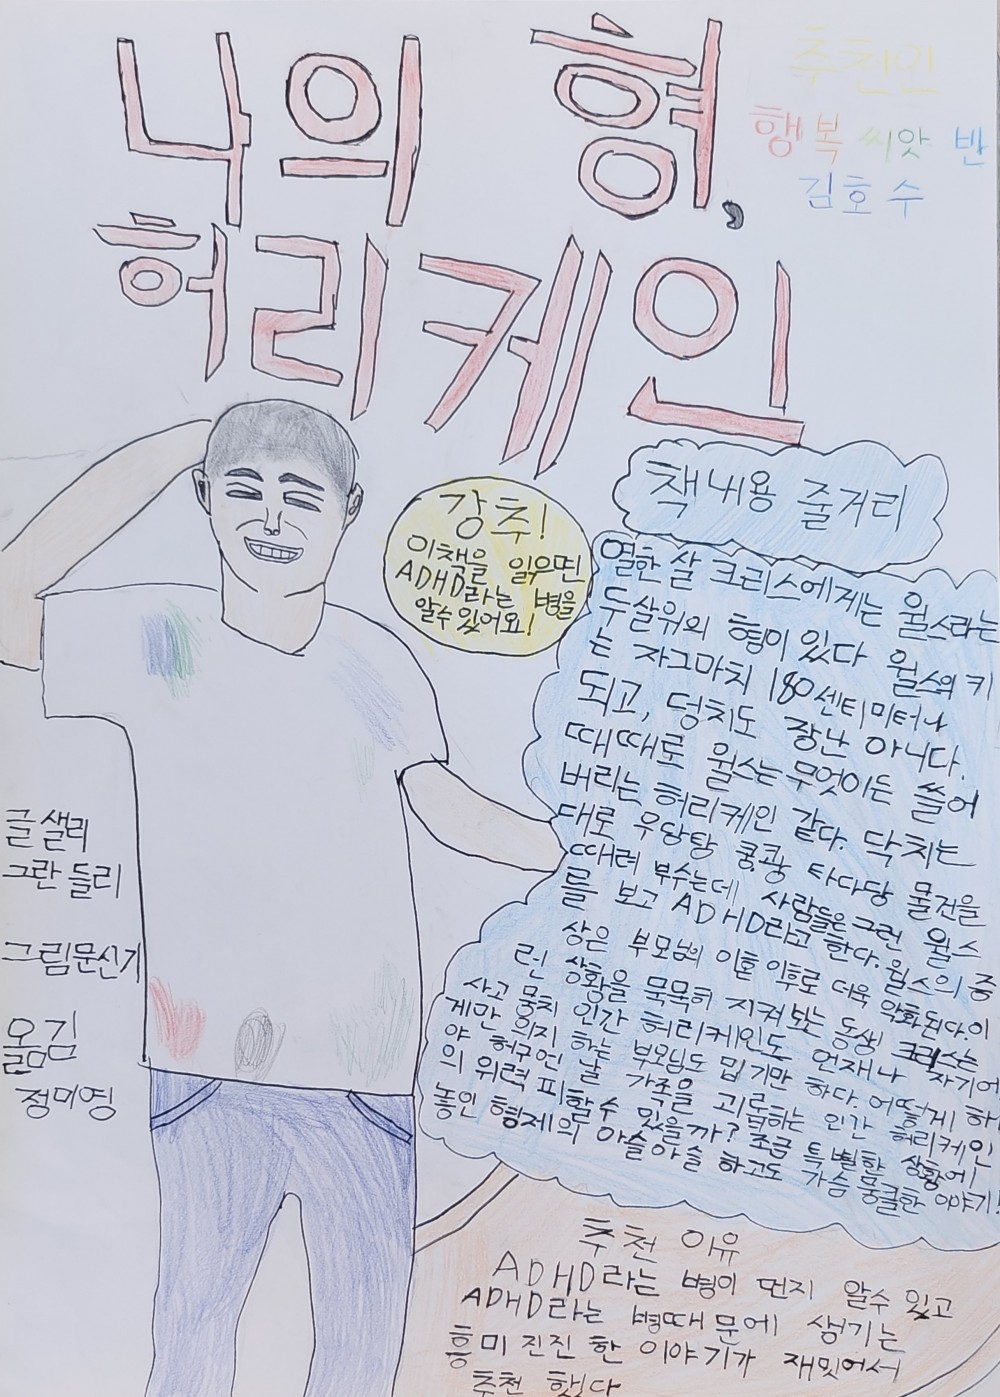 나의 형,
허리케인
추천인
행복 씨앗 반
김호수
강추!
이책을 읽으면
ADHD라는 병을
알수있어요!
책내용 줄거리
열한 살 크리스에게는 윌스라는
두살위의 형이 있다 윌스의 키
는 자그마치 180센티미터나
되고, 덩치도 장난 아니다.
때때로 윌스는 무엇이든 쓸어
버리는 허리케인 같다. 닥치는
대로 우당탕 쿵쾅 타다당 물건을
때려 부수는데 사람들은 그런 윌스
를 보고 ADHD라고 한다. 윌스의 증
상은 부모님의 이혼 이후로 더욱 악화된다. 이
런 상황을 묵묵히 지켜보는 동생 크리스는
사고 뭉치 인간 허리케인도 언제나 자기에
게만 의지 하는 부모님도 밉기만 하다. 어떻게 하
야 허구언 날 가족을 괴롭히는 인간 허리케인
의 위력 피할수 있을까? 조금 특별한 상황에
놓인 형제의 아슬아슬 하고도 가슴 뭉클한 이야기!
글 샐리
그란 들리
그림문신기
옮김
정미영
추천 이유
ADHD라는 병이 먼지 알수 있고
ADHD라는 병때문에 생기는
흥미 진진 한 이야기가 재밌어서
추천 했다